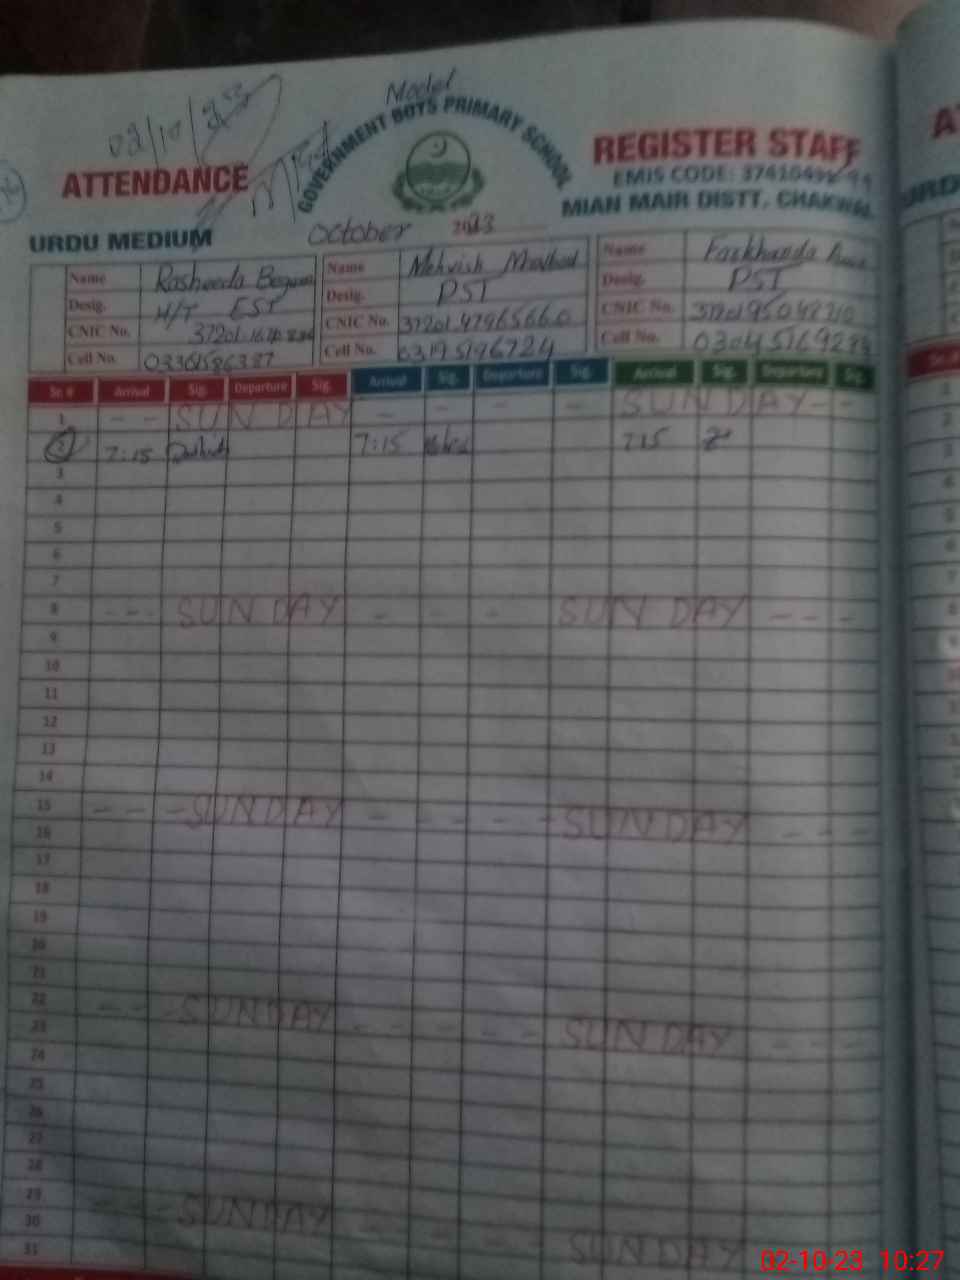 02/10/23
Model
GOVERNMENT BOYS PRIMARY SCHOOL
ATTENDANCE
REGISTER STAFF
EMIS CODE:
MIAN MAIR DISTT, CHAKWAL
URDU MEDIUM
October 2023
Name Rasheeda Begum Name Mehvish Name Farkhanda
Desig. H/T EST Desig. PST Desig. PST
CNIC No. CNIC No. CNIC No.
Cell No. Cell No. 03195196724 Cell No.
Sr. # Arrival Sig. Departure Sig. Arrival Sig. Departure Sig. Arrival Sig. Departure Sig.
1 - - SUNDAY - - - - SUNDAY - -
2 7:15 7:15 7:15
3
4
5
6
7
8 - - - SUNDAY - - - SUNDAY - - -
9
10
11
12
13
14
15 - - - SUNDAY - - - - - SUNDAY - - -
16
17
18
19
20
21
22 - - - SUNDAY - - - - - SUNDAY - - -
23
24
25
26
27
28
29 - - - SUNDAY - - - - SUNDAY
30
31
02-10-23 10:27